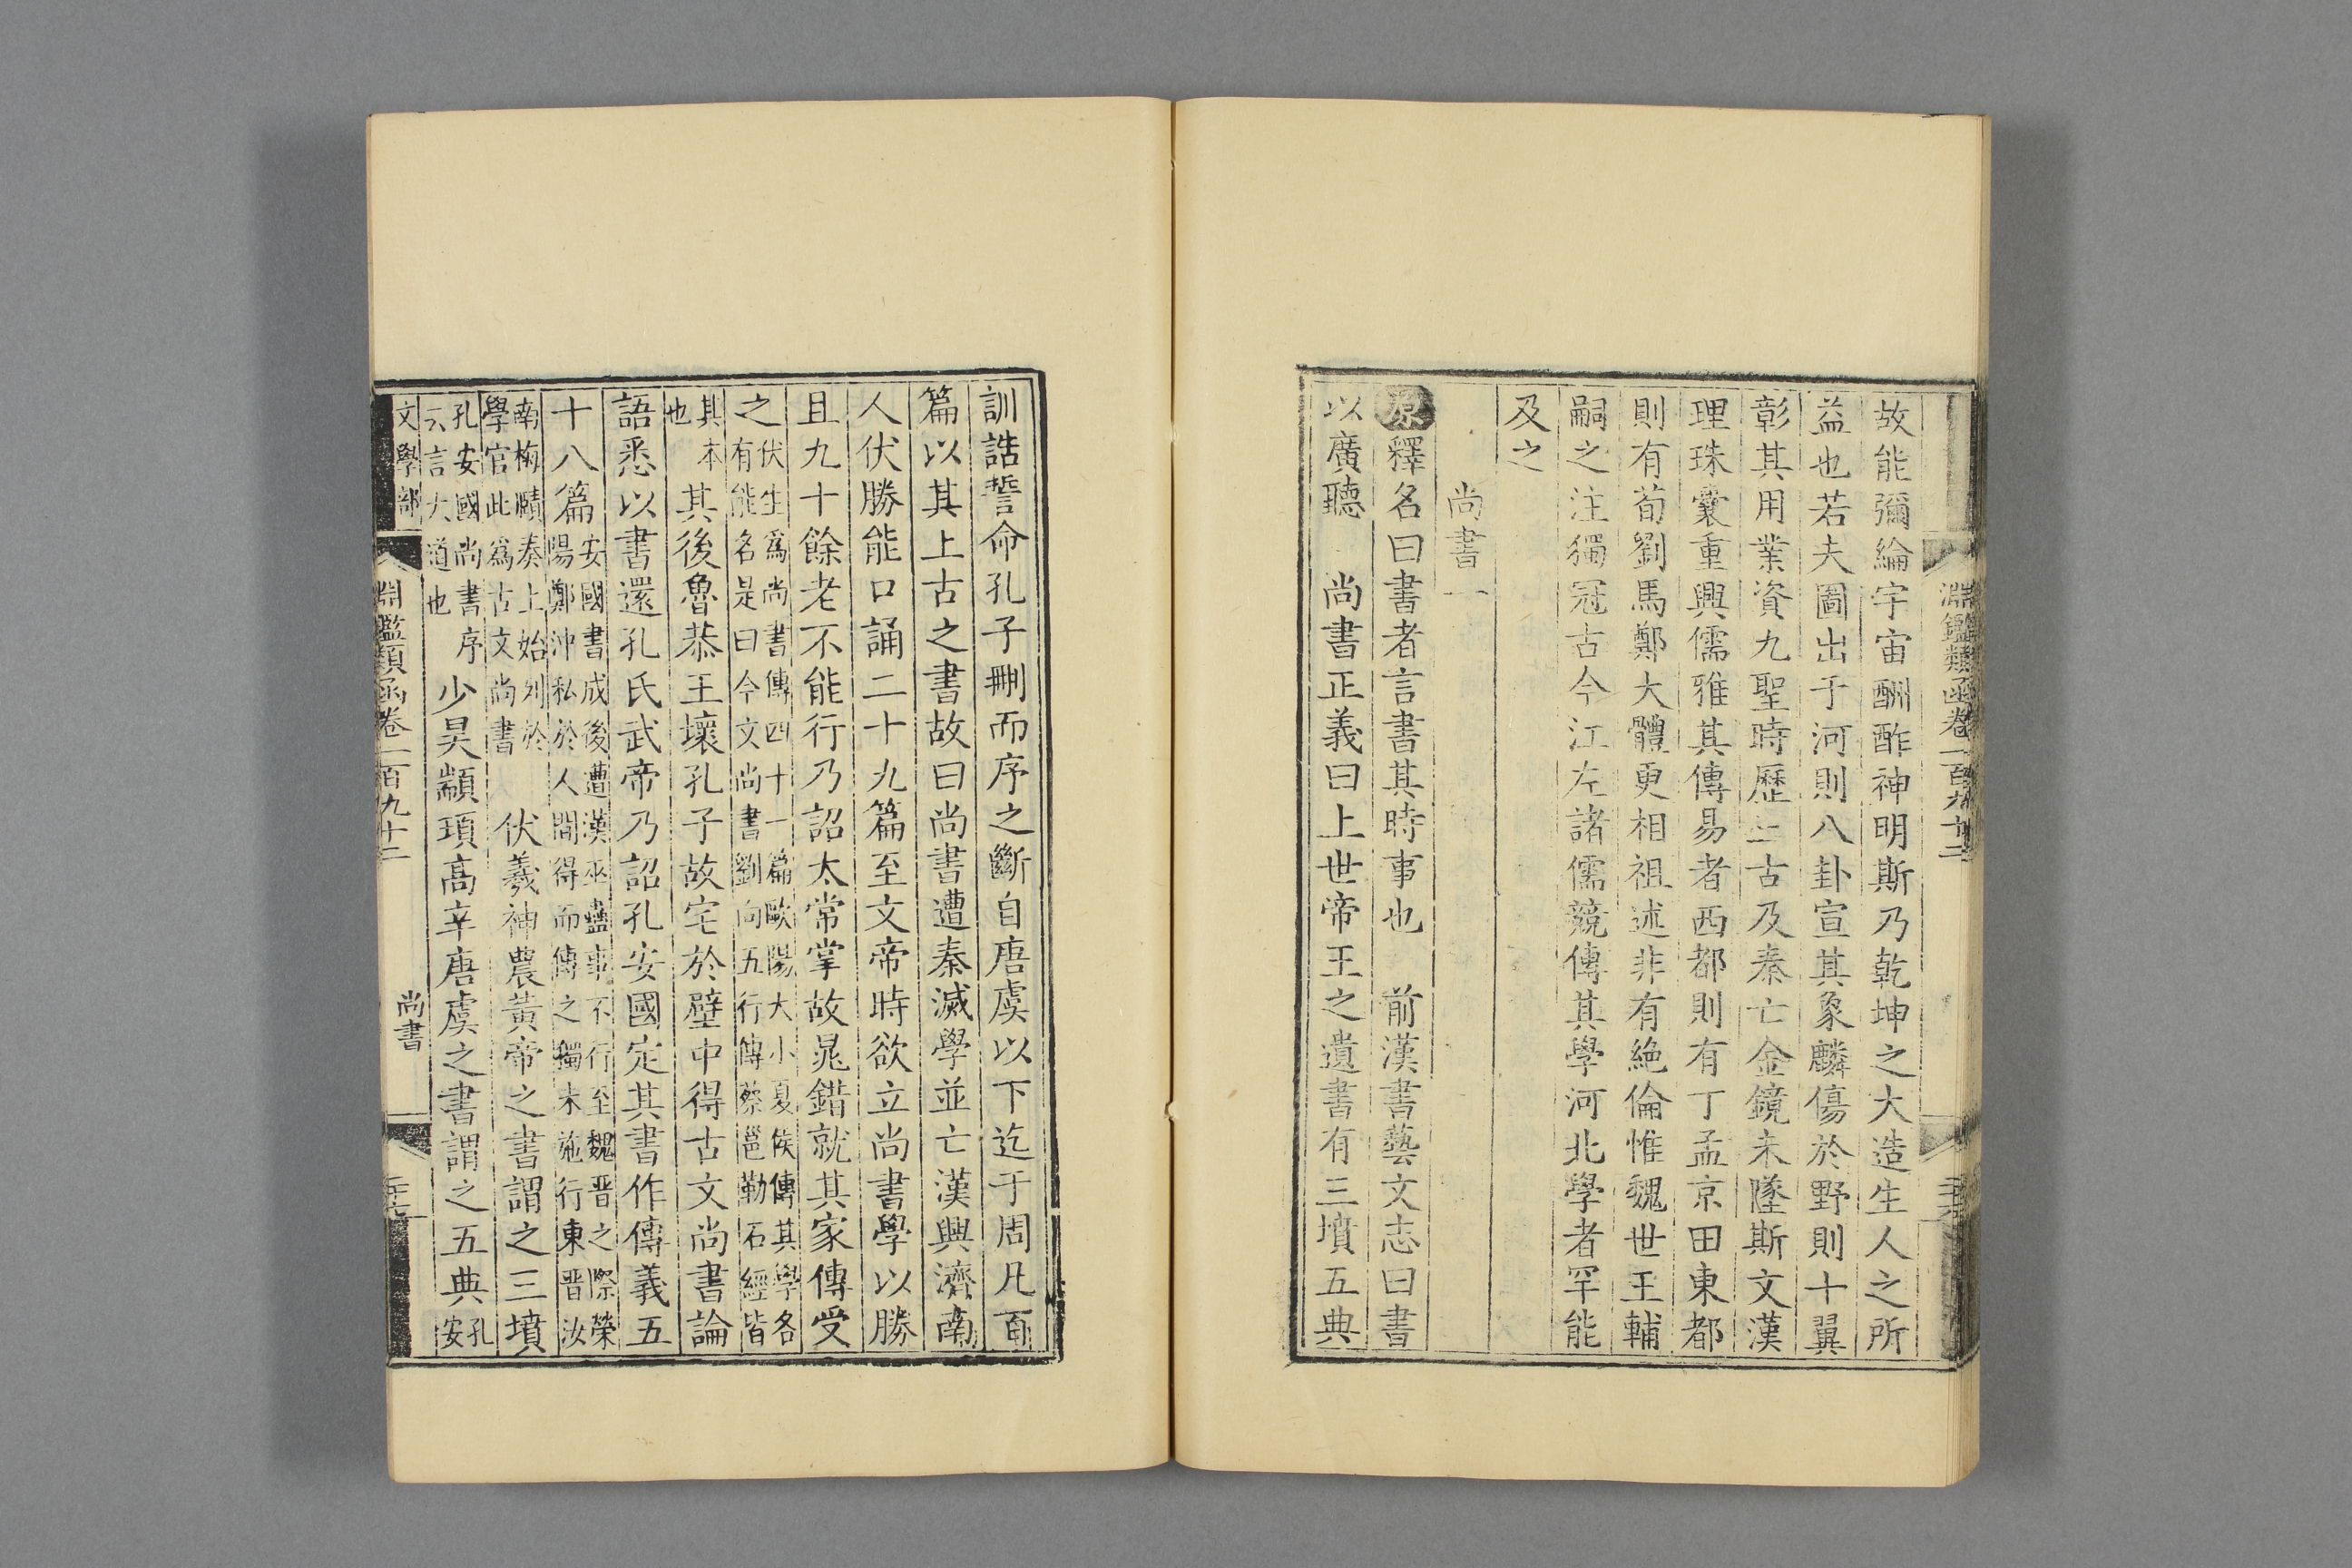 淵鑑類函卷一百九十二
故能彌綸宇宙酬酢神明斯乃乾坤之大造生人之所
益也若夫圖出于河則八卦宣其象麟傷於野則十翼
彰其用業資九聖時歷三古及秦亡金鏡未墜斯文漢
理珠囊重興儒雅其傳易者西都則有丁孟京田東都
則有荀劉馬鄭大體更相祖述非有絶倫惟魏世王輔
嗣之注獨冠古今江左諸儒競傳其學河北學者罕能
及之
尚書一
原釋名曰書者言書其時事也 前漢書藝文志曰書
以廣聽 尚書正義曰上世帝王之遺書有三墳五典
訓誥誓命孔子刪而序之斷自唐虞以下迄于周凡百
篇以其上古之書故曰尚書遭秦滅學並亡漢興濟南
人伏勝能口誦二十九篇至文帝時欲立尚書學以勝
且九十餘老不能行乃詔太常掌故晁錯就其家傳受
之伏生爲尚書傳四十一篇歐陽大小夏侯傳其學各
有能名是曰今文尚書劉向五行傳蔡邕勒石經皆
其本
也
其後魯恭王壞孔子故宅於壁中得古文尚書論
語悉以書還孔氏武帝乃詔孔安國定其書作傳義五
十八篇安國書成後遭漢巫蠱事不行至魏晋之際滎
陽鄭冲私於人間得而傳之獨未施行東晋汝
南梅賾奏上始列於
學官此爲古文尚書
伏羲神農黃帝之書謂之三墳
孔安國尚書序
云言大道也
少昊顓頊高辛唐虞之書謂之五典孔
安
文學部
淵鑑類函卷一百九十二
尚書